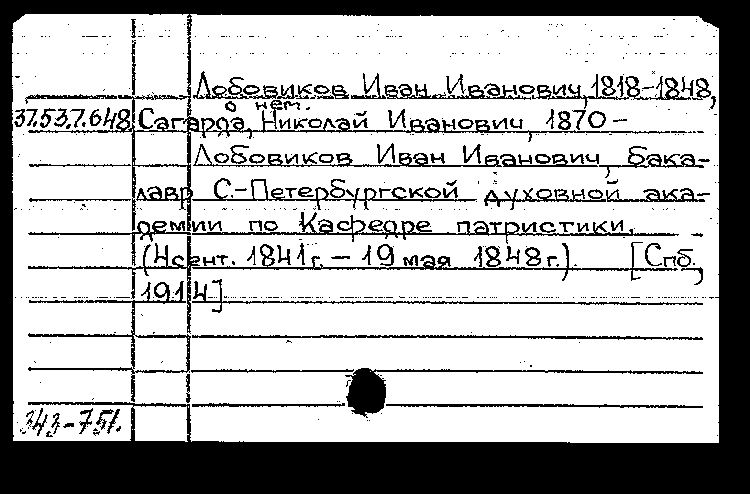 Лобовиков Иван Иванович, 1818-1848,
о нем.
37.53.7.648 Сагарда, Николай Иванович, 1870 -
Лобовиков Иван Иванович, бака-
лавр С.-Петербургской духовной ака-
демии по кафедре патристики.
(4 сент. 1841 г. - 19 мая 1848 г.). [Спб.,
1914]
343-751.